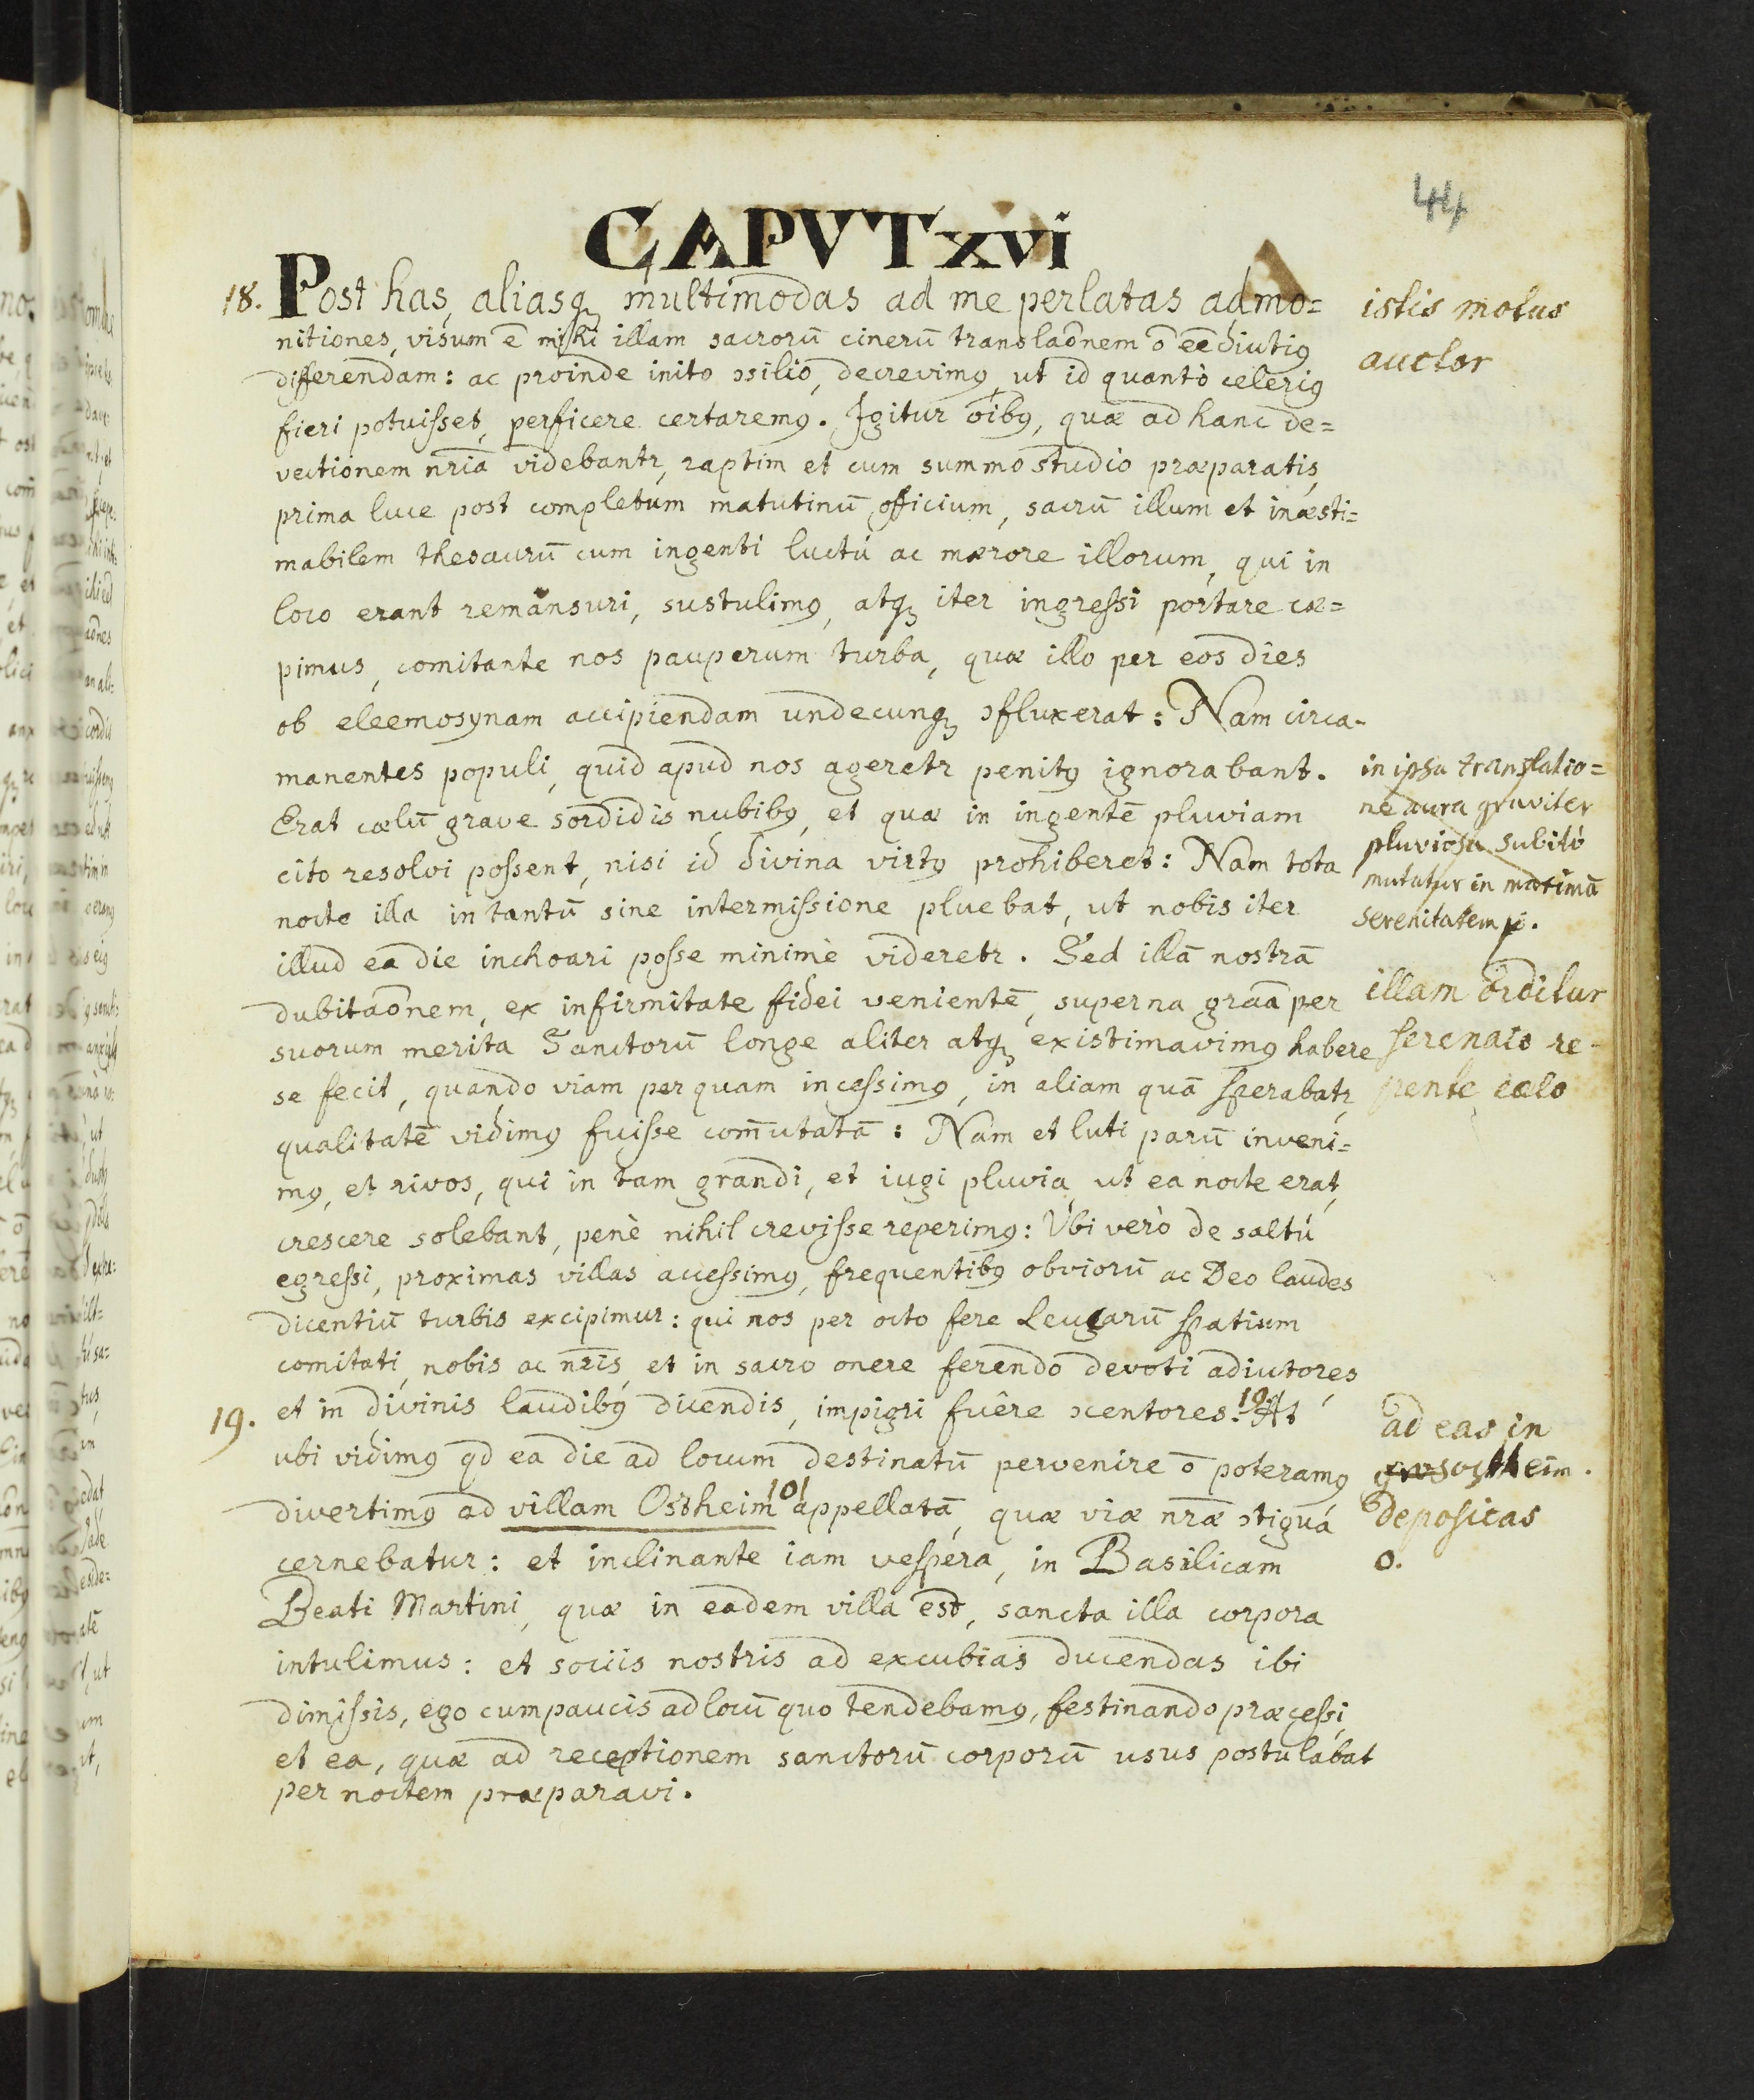 44
CAPVT xvi
18. Post has, aliasq₃ multimodas ad me perlatas admo=
nitiones, visum ē mihi illam sacrorū cinerū translaõnem õ eē diutiꝰ
differendam: ac proinde inito ɔsilio, decrevimꝰ, ut id quantò celeriꝰ
fieri potuisset, perficere certaremꝰ. Igitur oībꝰ, quæ ad hanc de=
vectionem nr̃ia videbantr, raptim et cum summo studio præparatis,
prima luce post completum matutinū officium, sacrū illum et inæsti=
mabilem thesaurū cum ingenti luctú ac mærore illorum, qui in
loco erant remansuri, sustulimꝰ, atq₃ iter ingressi portare cæ=
pimus, comitante nos pauperum turba, quæ illo per eos dies
ob eleemosynam accipiendam undecunq₃ ɔfluxerat: Nam circa-
manentes populi, quid apud nos ageretr penitꝰ ignorabant.
Erat cœlū grave sordidis nubibꝰ, et quæ in ingentē pluviam
cito resolvi possent, nisi id divina virtꝰ prohiberet: Nam tota
nocte illa in tantū sine intermissione pluebat, ut nobis iter
illud ea die inchoari posse minimè videretr. Sed illā nostrā
dubitaõnem, ex infirmitate fidei venientē, superna grãa per
suorum merita Sanctorū longe aliter atq₃ existimavimꝰ habere
se fecit, quando viam per quam incessimꝰ, in aliam quā sperabatr
qualitatē vidimꝰ fuisse com̄utatā: Nam et luti parū inveni=
mꝰ, et rivos, qui in tam grandi, et iugi pluvia, ut ea nocte erat,
crescere solebant, penè nihil crevisse reperimꝰ: Vbi verò de saltú
egressi, proximas villas accessimꝰ, frequentibꝰ obviorū ac Deo laudes
dicentiū turbis excipimur: qui nos per octo fere Leugarū spatium
comitati, nobis ac nr̃is, et in sacro onere ferendo devoti adiutores,
et in divinis laudibꝰ dicendis, impigri fuêre ɔcentores. 19. At
19. ubi vidimꝰ qd ea die ad locum destinatū pervenire õ poteramꝰ
divertimꝰ ad villam Ostheim 101 appellatā, quæ viæ nr̃æ ɔtigua
cernebatur: et inclinante iam vespera, in Basilicam
Beati Martini, quæ in eadem villa est, sancta illa corpora
intulimus: et sociis nostris ad excubias ducendas ibi
dimissis, ego cum paucis ad locū quo tendebamꝰ, festinando præcessi,
et ea, quæ ad receptionem sanctorū corporū usus postulabat
per noctem præparavi.
istis motus
auctor
in ipsa translatio=
ne aura graviter
pluviosa subitò
mutatur in maximā
serenitatem
illam orditur
serenato re-
pente cœlo
ad eas in
ostheim.
deposicas
o.